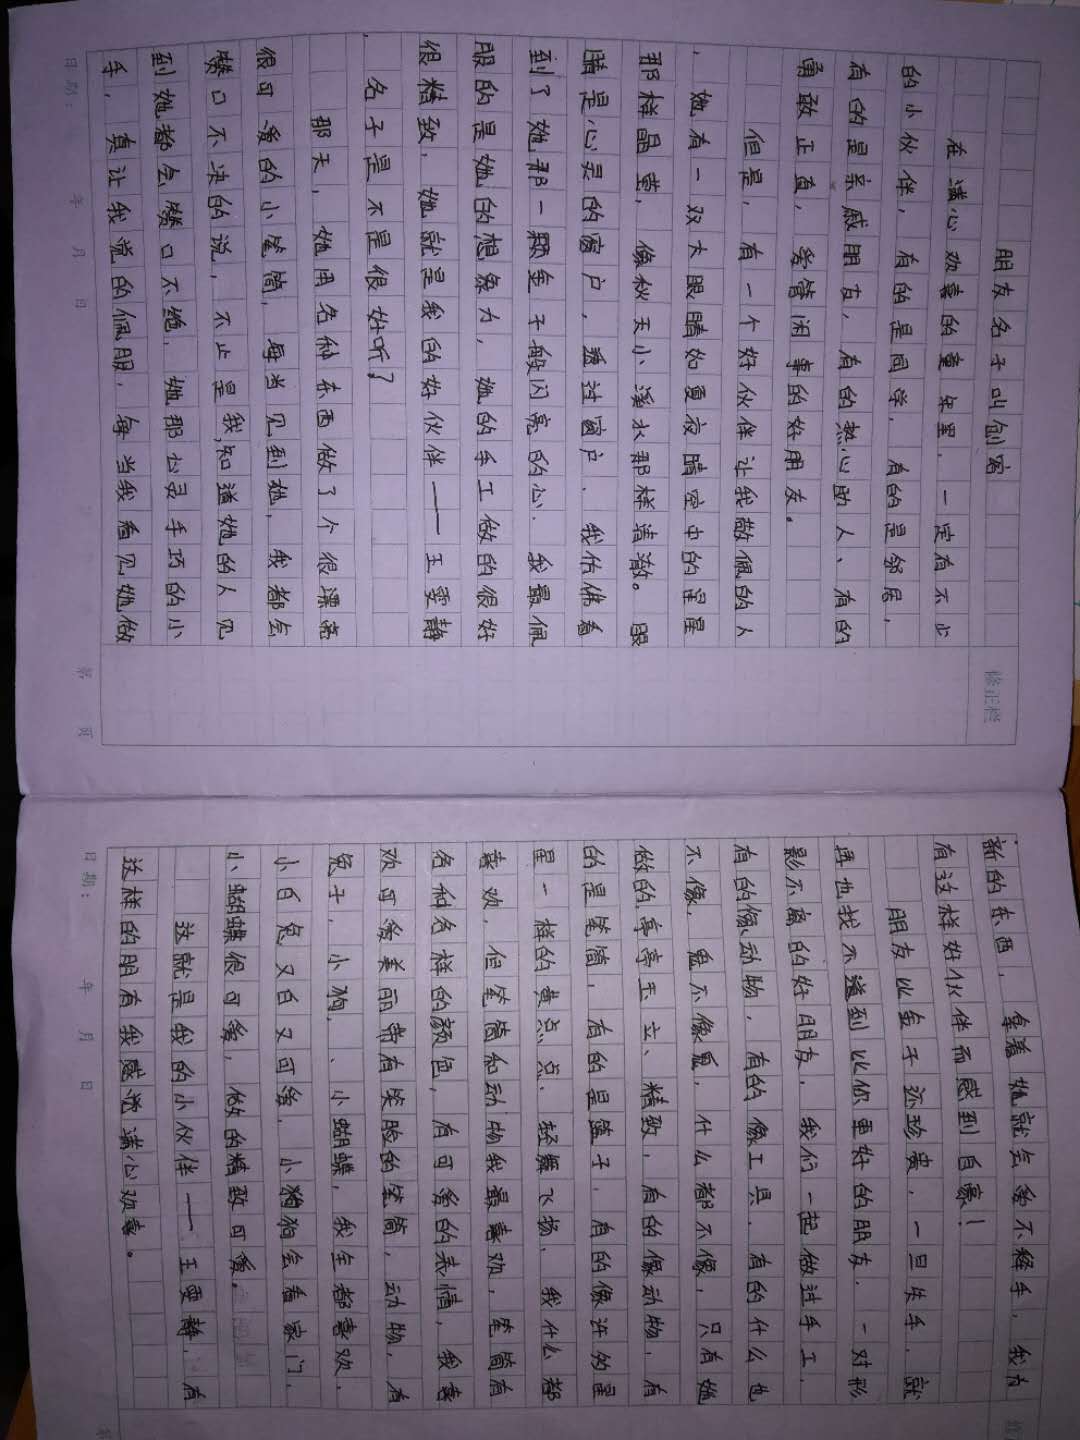 朋友名子叫创寓
在满心欢喜的童年里,一定有不少
的小伙伴,有的是同学,有的是邻居,
有的是亲戚朋友,有的热心助人、有的
勇敢正直,爱管闲事的好朋友。
但是,有一个好伙伴让我敬佩的人
,她有一双大眼睛如夏夜晴空中的星星
那样晶莹,像秋天小溪水那样清澈。眼
睛是心灵的窗户,透过窗户,我仿佛看
到了她那一颗金子般闪亮的心.我最佩
服的是她的想象力,她的手工做的很好
很精致,她就是我的好伙伴——王雯静
,名子是不是很好听?
那天,她用各种东西做了个很漂亮
很可爱的小笔筒,每当见到她,我都会
赞口不决的说,不止是我,知道她的人见
到她都会赞口不绝,她那心灵手巧的小
手,真让我觉的佩服,每当我看见她做
新的东西,拿着她就会爱不释手,我为
有这样好伙伴而感到自豪!
朋友比金子还珍贵,一旦失手,就
再也找不道到比你更好的朋友.一对形
影不离的好朋友,我们一起做过手工,
有的像动物,有的像工具,有的什么也
不像,鬼不像鬼,什么都不像,只有她
做的亭亭玉立、精致,有的像动物,有
的是笔筒,有的是篮子,有的像许多星
星一样的黄点点,轻舞飞扬,我什么都
喜欢,但笔筒和动物我最喜欢,笔筒有
各种各样的颜色,有可爱的表情,我喜
欢可爱美丽带有笑脸的笔筒,动物,有
兔子,小狗,、小蝴蝶,我全都喜欢,
小白兔又白又可爱,小狗狗会看家门,
小蝴蝶很可爱,做的精致可爱。
这就是我的小伙伴——王雯静,有
这样的朋有我感觉满心欢喜。
修正栏
日期: 年 月 日 第 页
日期: 年 月 日